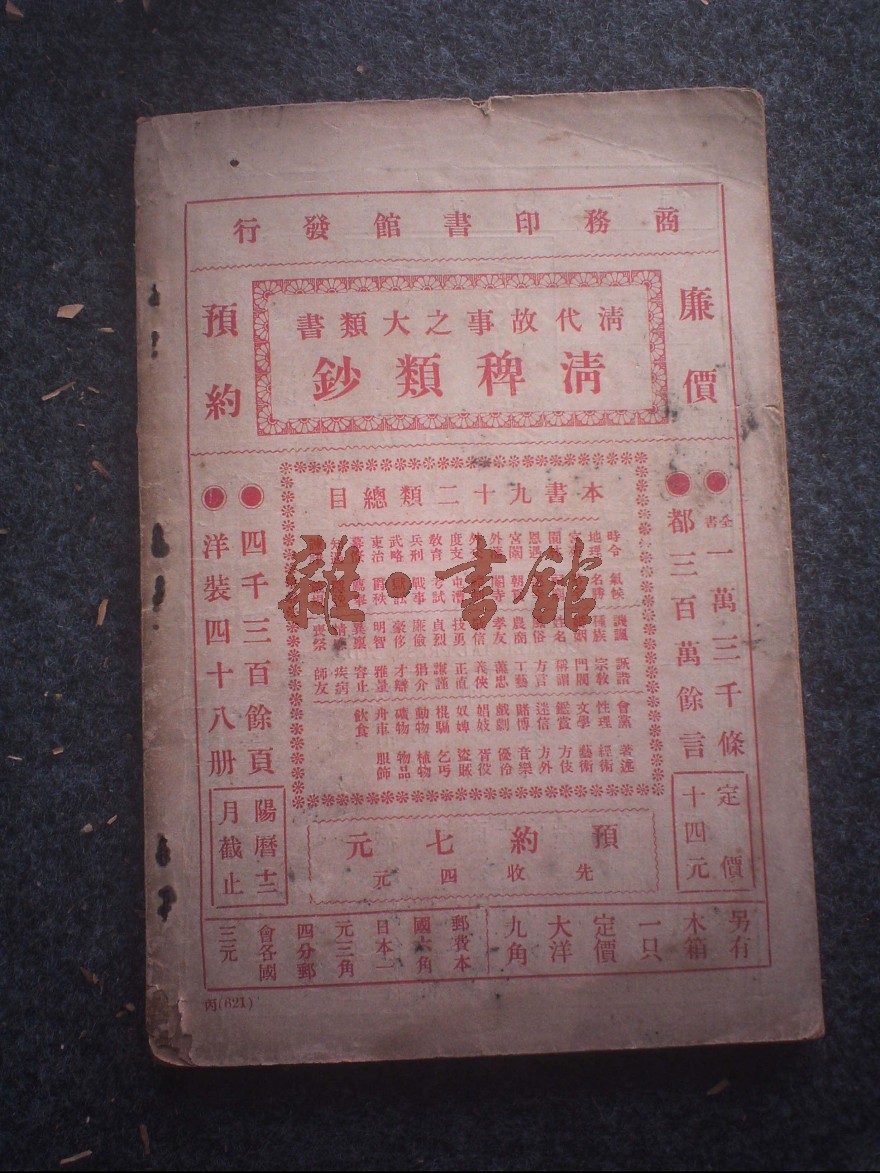 商務印書館發行
廉價
預約
清代故事之大類書
清稗類鈔
全書一萬三千條
都三百萬餘言
四千三百餘頁
洋裝四十八册
本書九十二類總目
時令 氣候
地理 名勝
宮闈 朝貢
外
度支 屯漕
教育 考試
兵刑 戰事
武略 獄訟
吏治 爵秩
幕僚
譏諷 詼諧
種族 宗教
婚姻 門閥
姓名 稱謂
風俗 方言
農商 工藝
孝友 義忠
義俠
技勇 正直
貞烈 謙謹
廉儉 狷介
豪侈 才辯
明智 雅量
異稟 容止
情感 疾病
喪祭 師友
會黨 著述
性理 經術
文學 藝術
鑑賞 方伎
迷信 方外
賭博 音樂
戲劇 優伶
娼妓 胥役
奴婢 盜賊
棍騙 乞丐
動物 植物
礦物 物品
舟車 服飾
飲食
定價十四元
預約七元
先收四元
陽曆十二月截止
另有木箱一只定價大洋九角
郵費本國六角日本一元三角四分郵會各國三元
丙(621)
雜·書館